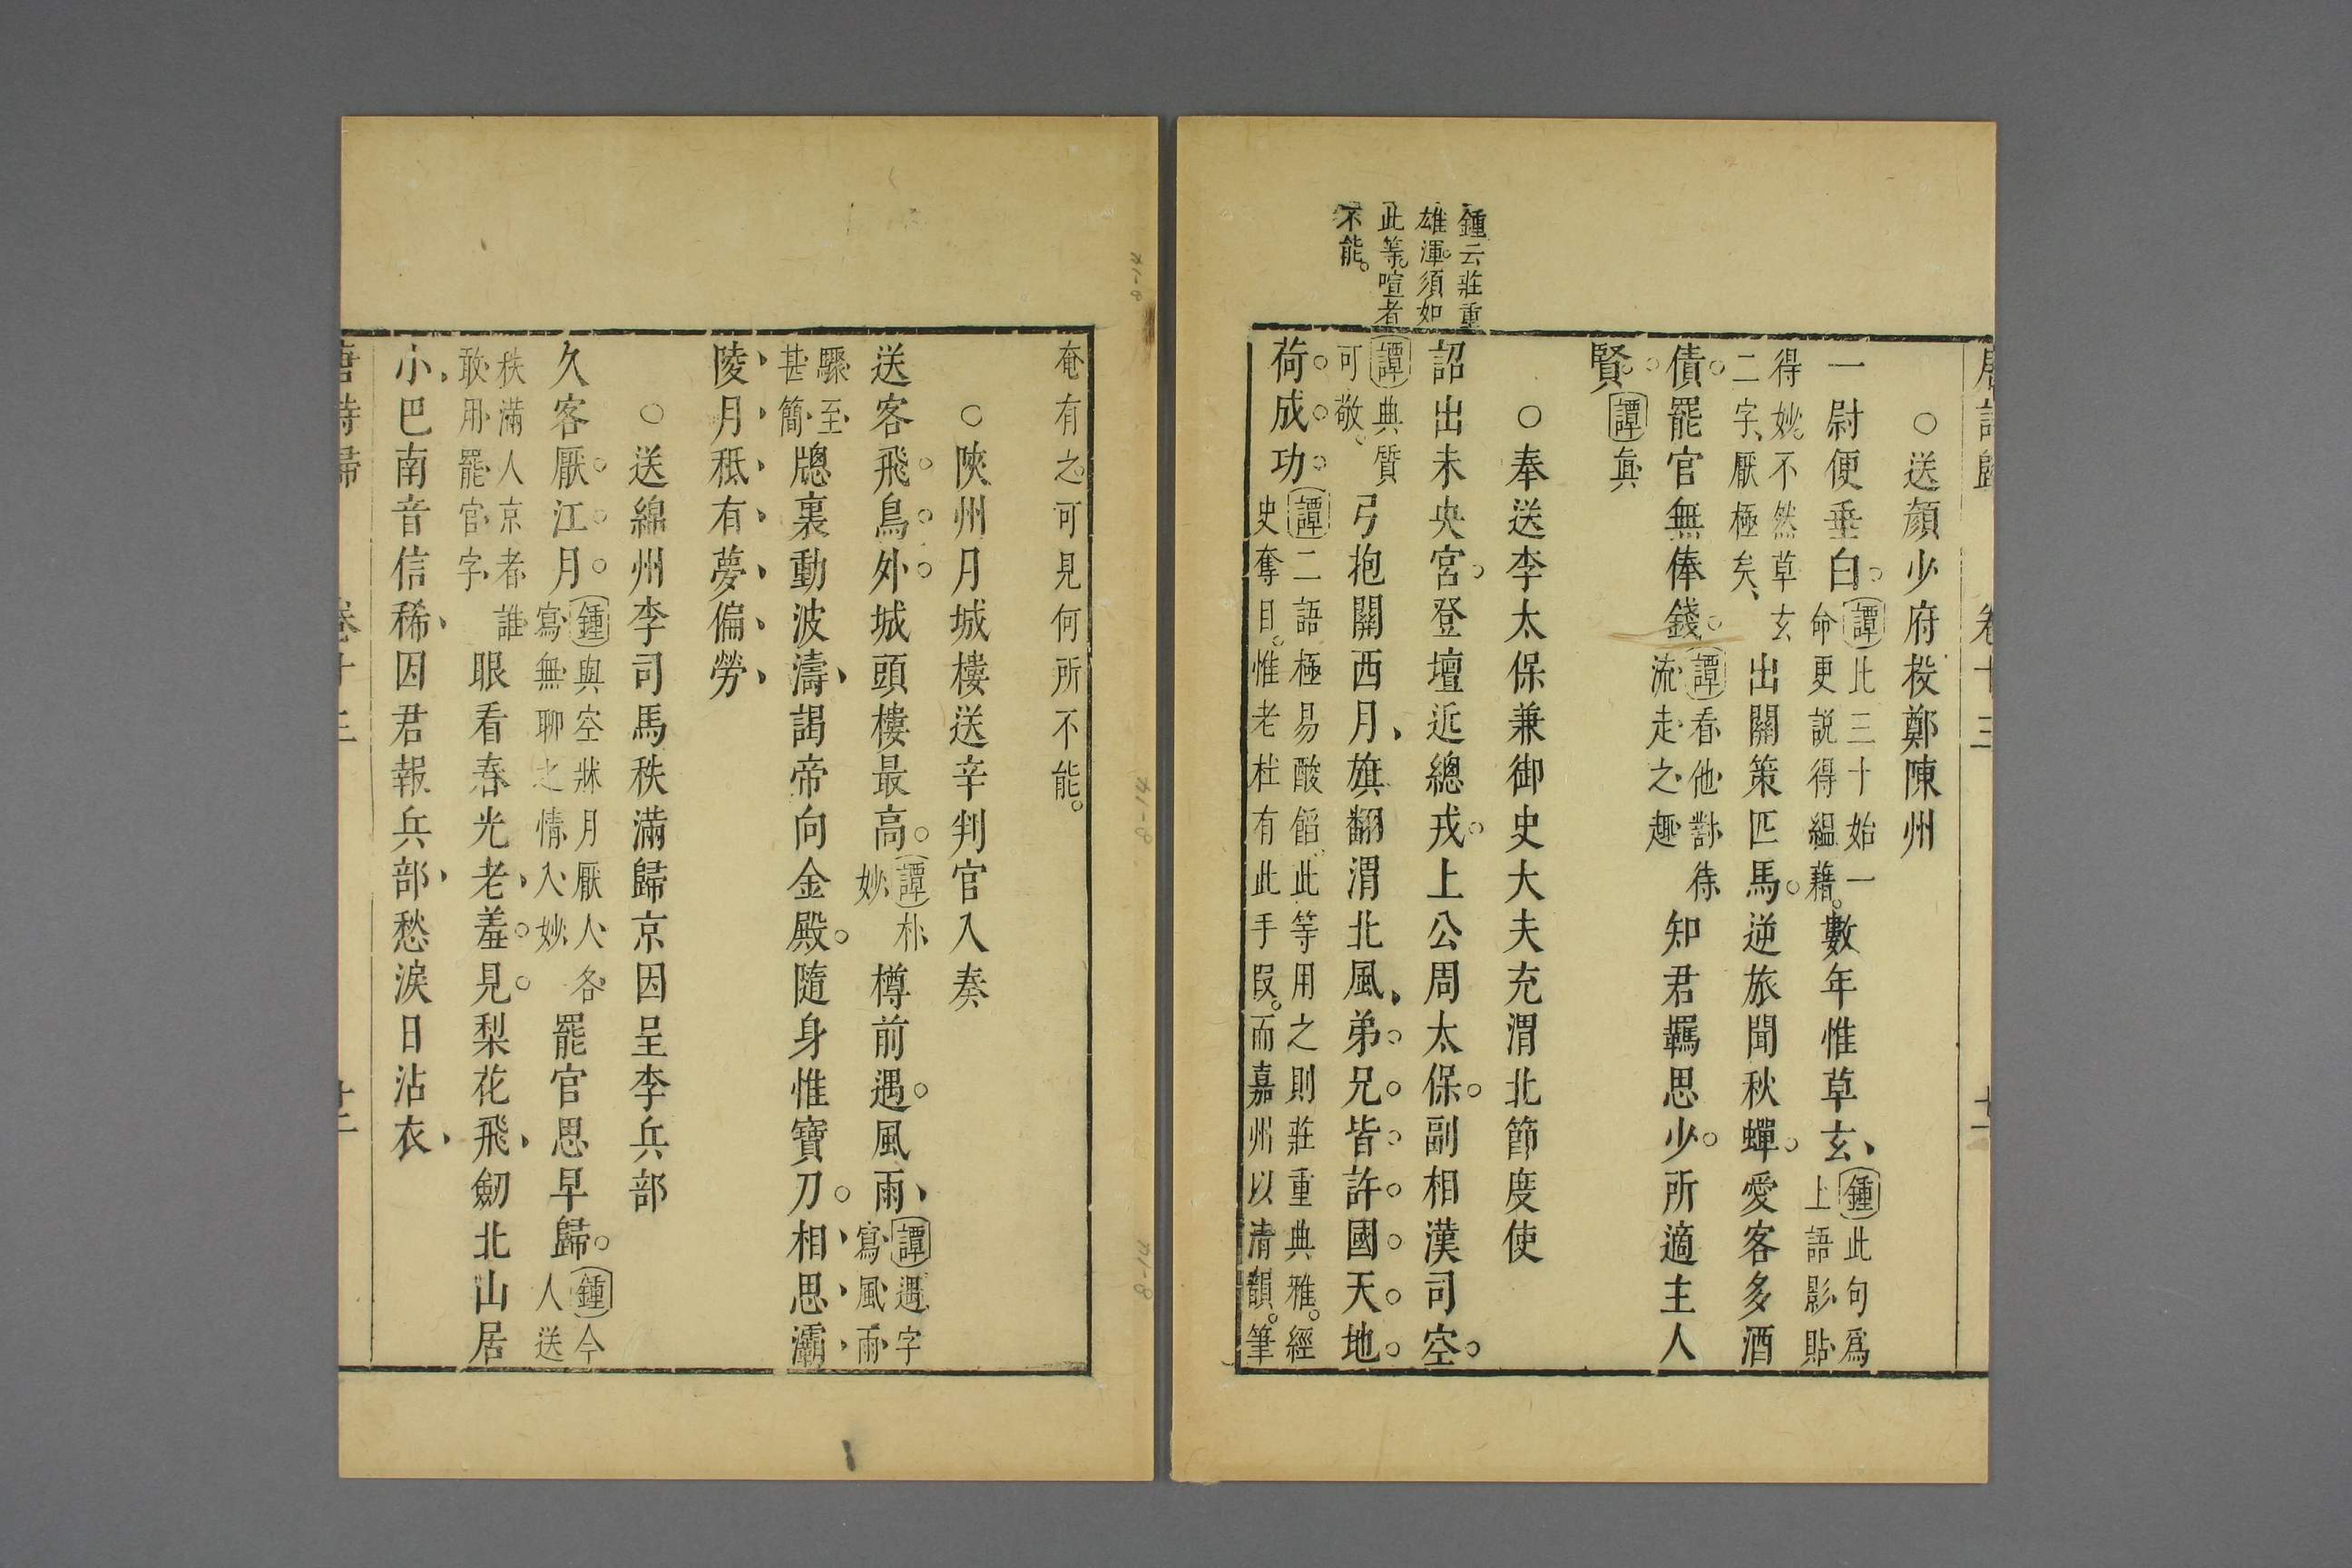 唐詩歸 卷十三
○送顏少府投鄭陳州
一尉便垂白。譚此三十始一命更説得緼藉。數年惟草玄、鍾此句爲上語影貼
得妙。不然草玄二字、厭極矣、出關策匹馬。逆旅聞秋蟬。愛客多酒
債。罷官無俸錢。譚看他對待流走之趣知君羈思少。所適主人
賢。譚眞
○奉送李太保兼御史大夫充渭北節度使
詔出未央宮。登壇近總戎。上公周太保。副相漢司空。
鍾云莊重
雄渾須如
此等。喧者
不能。
譚典質可敬、弓抱關西月、旗翻渭北風、弟兄皆許國天地。
荷成功。譚二語極易酸餡、此等用之則莊重典雅。經史奪目。惟老杜有此手段。而嘉州以清韻。筆
奄有之。可見何所不能。
○陝州月城樓送辛判官入奏
送客飛鳥外。城頭樓最高。譚朴妙樽前遇。風雨、譚遇字寫風雨
驟至甚簡牕裏動波濤、謁帝向金殿。隨身惟寶刀。相思灞
陵月秪有夢偏勞、
○送綿州李司馬秩滿歸京因呈李兵部
久客厭江月。鍾與空牀月厭人各寫無聊之情入妙罷官思早歸。鍾今人送
秩滿人京者誰敢用罷官字眼看春光老、羞見。梨花飛、劒北山居
小、巴南音信稀、因君報兵部、愁淚日沾衣、
唐詩歸 卷十三